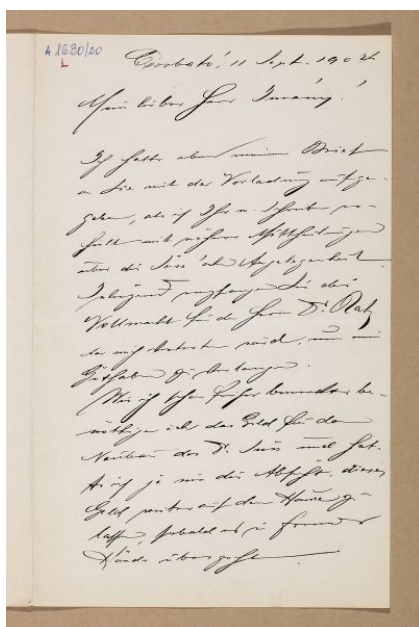 A 1630/20
L
Csorbató, 11 Sept. 1902
Mein lieber Herr Iurány!
Ich hatte eben meinen Brief
an Sie mit der Vorladung aufge-
geben, als ich Ihr Schreiben er-
hielt mit näheren Mittheilungen
über die Angelegenheit.
Inliegend empfangen Sie die
Vollmacht für den Herrn Dr. Ratz
der mich vertreten wird, um mein
Guthaben zu verlangen.
Wie ich schon früher bemerkte be-
nöthige ich das Geld für den
Neubau des Dr. und hat-
te ich ja nie die Absicht, dieses
Geld weiter auf dem Hause zu
lassen, sobald es in fremde
Hände übergeht.